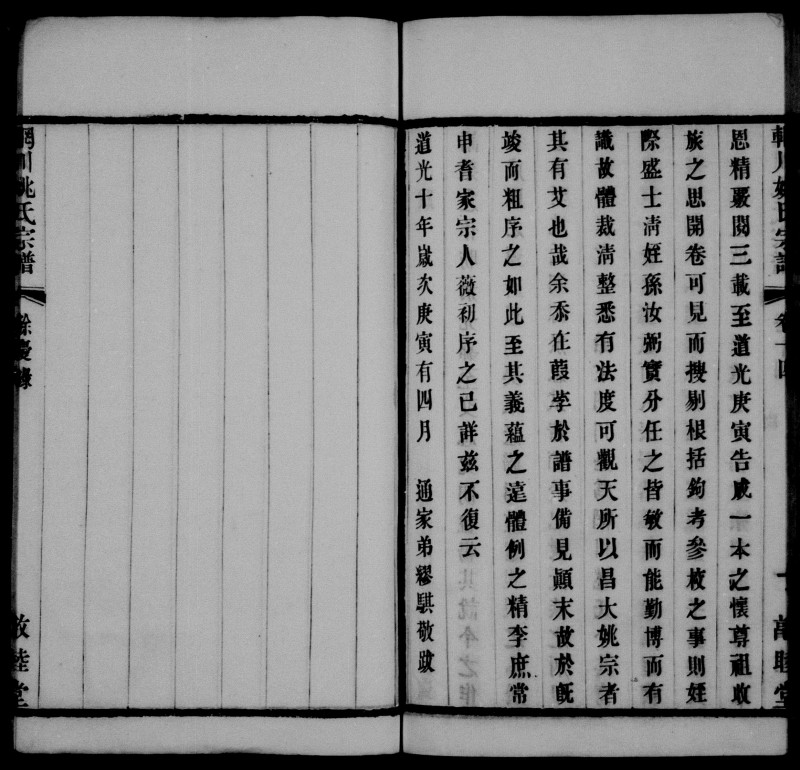 恩精覈閱三載至道光庚寅告成一本之懷尊祖收
族之思開卷可見而搜剔根括鉤考參校之事則姪
際盛士淸姪孫汝弼實分任之皆敏而能勤博而有
識故體裁淸整悉有法度可觀天所以昌大姚宗者
其有艾也哉余忝在葭莩於譜事備見顚末故於旣
竣而粗序之如此至其義蘊之遠體例之精李庶常
申耆家宗人薇初序之已詳茲不復云
道光十年歲次庚寅有四月 通家弟繆騏敬跋
輞川姚氏宗譜 卷十四
輞川姚氏宗譜 餘慶錄 敦睦堂